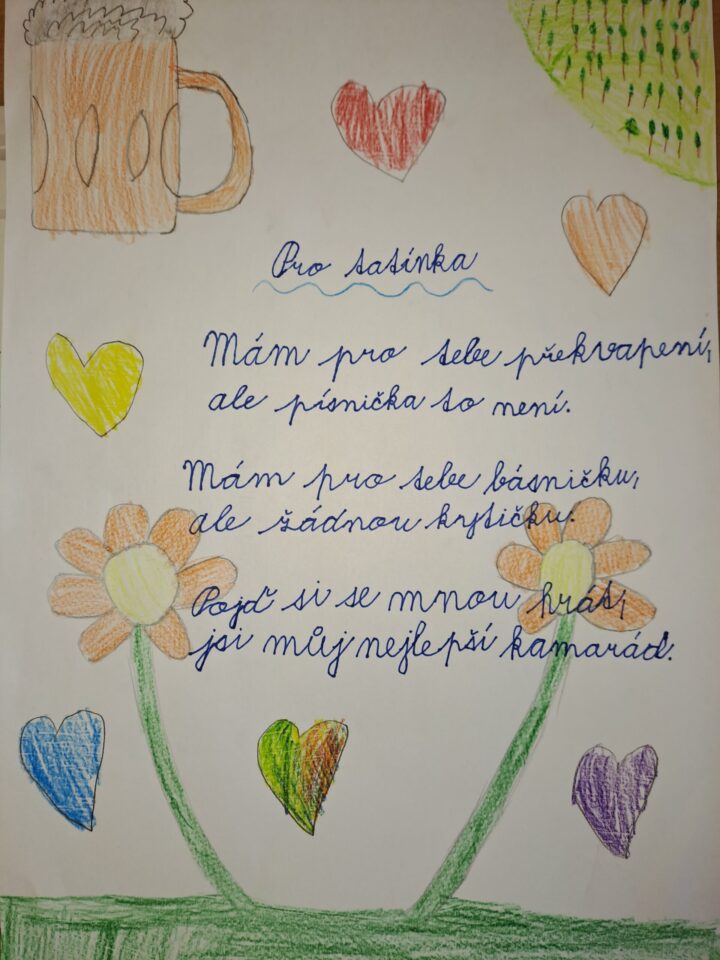 Pro tatínka
Mám pro tebe překvapení,
ale písnička to není.
Mám pro tebe básničku,
ale žádnou kytičku.
Pojď si se mnou hrát,
jsi můj nejlepší kamarád.